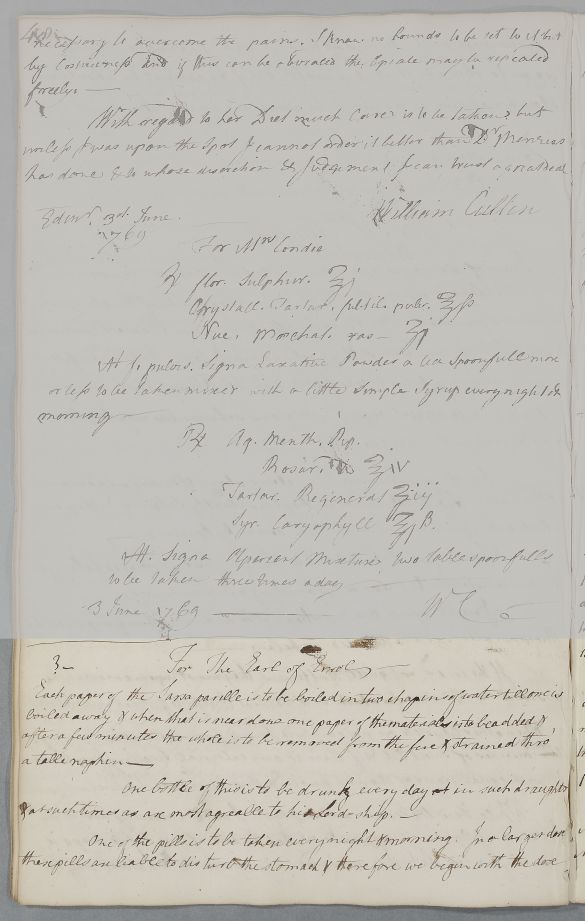 48.
necessary to overcome the pains. I know no bounds to be set to it but
by Costiveness and if this can be obviated the Opiate may be repeated
freely. —
With regard to her Diet much Care is to be taken, but
unless I was upon the spot I cannot order it better than Dr. Menzies
has done & to whose discretion & Judgement I can trust a great deal.
William Cullen
Edinr. 3d. June
1769
For Mrs Condie
℞ flor. Sulphur. ℥j
Chrystall. Tartar. subtil. pulv. ℥ß
Nuc. Moschat. ras — ʒj
M. f. pulvis. Signa Laxative Powder a tea spoonfull more
or less to be taken mixed with a little simple Syrup every night &
morning —
℞ Aq. Menth. Pip.
Rosar. ℥iv
Tartar. Regenerat ʒiij
Syr. Caryophyll ℥jß.
M. Signa Aperient Mixture, two tablespoonfulls
to be taken three times a day
3 June 1769 — W C
3 — For The Earl of Errol —
Each paper of the Sarsaparille is to be boiled in two chopins of water till one is
boiled away & when that is near done one paper of the materials is to be added &
after a few minutes the whole is to be removed from the fire & strained thro'
a table napkin —
One bottle of this is to be drunk every day in such draughts
& at such times as are most agreable to his Lord-ship. —
One of the pills is to be taken every night & morning. In a larger dose
these pills are liable to disturb the stomach & therefore we begin with the dose